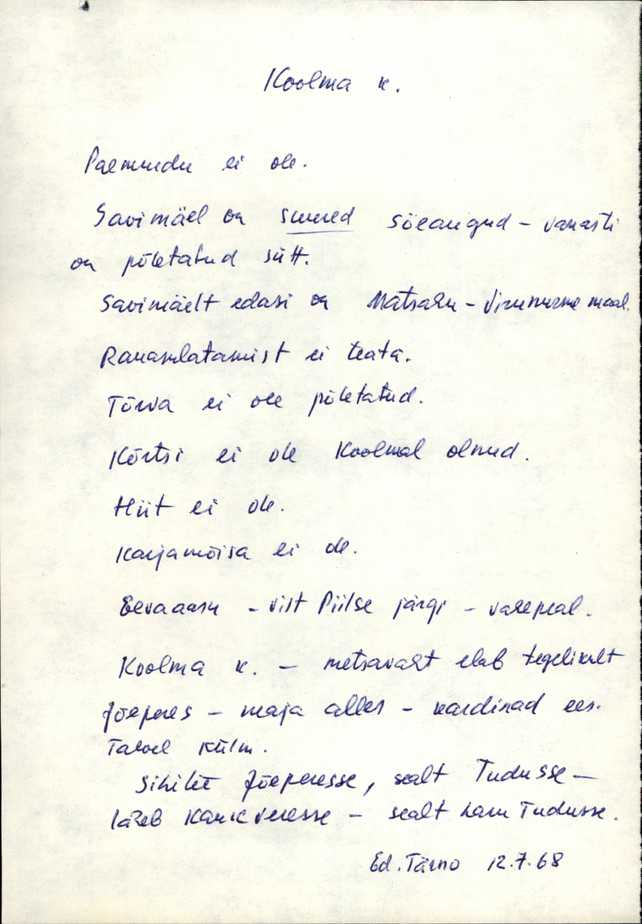 Koolma k.
Paemurdu ei ole.
Savimäel on suured söeaugud - vanasti
on põletatud sütt.
Savimäelt edasi on Matsaru - Virunurme maal.
Rauasulatamist ei teata.
Tõrva ei ole põletatud.
Kõrtsi ei ole Koolmal olnud.
Hiit ei ole.
Karjamõisa ei ole.
Eevaaasu - vist Piilse järgi - vasepeal.
Koolma k. - metsavaht elab tegelikult
Jõeperes - maja alles - kardinad ees.
Talvel külm.
Sihilt Jõeperesse, sealt Tudusse -
läheb Kaukveresse - sealt haru Tudusse.
Ed. Tärno 12.7.68